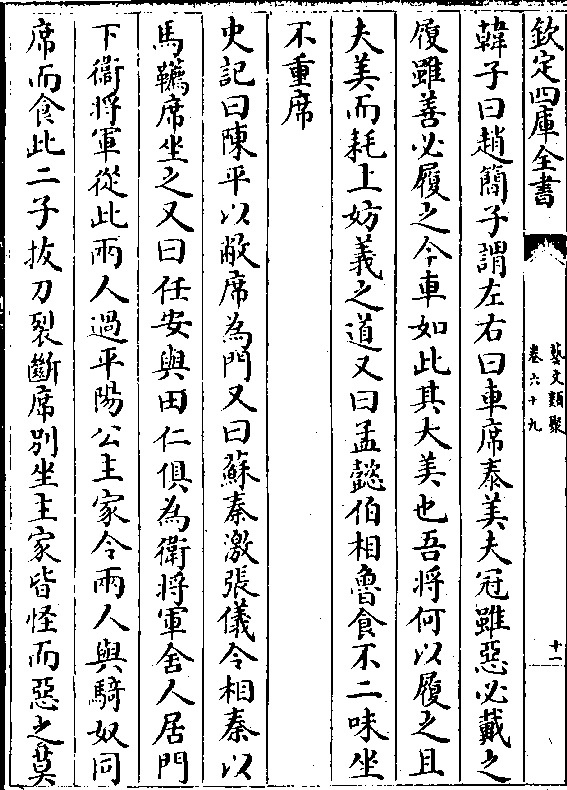 欽定四庫全書
藝文類聚
卷六十九
十一
韓子曰趙簡子謂左右曰車席泰美夫冠雖惡必戴之
履雖善必履之今車如此其大美也吾將何以履之且
夫美而耗上妨義之道又曰孟懿伯相魯食不二味坐
不重席
史記曰陳平以敝席為門又曰蘇秦激張儀令相秦以
馬韉席坐之又曰任安與田仁俱為衛將軍舍人居門
下衛將軍從此兩人過平陽公主家令兩人與騎奴同
席而食此二子拔刀裂斷席別坐主家皆怪而惡之莫